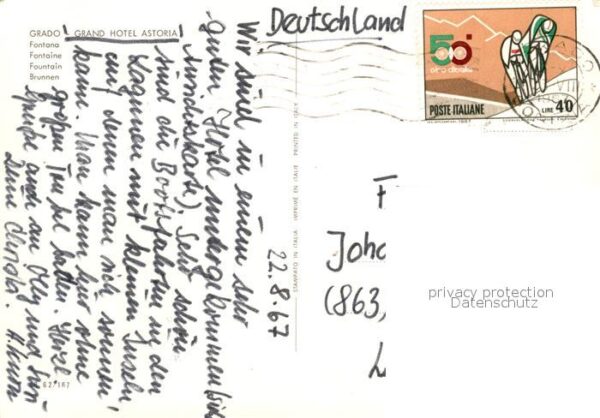 GRADO - GRAND HOTEL ASTORIA
Fontana
Fontaine
Fountain
Brunnen
Deutschland
50
giro d'italia
POSTE ITALIANE
LIRE 40
Wir sind in einem sehr
guten Hotel untergekommen (sie
Ansichtskarte). Sehr schön
sind die Bootsfahrten in den
Lagunen mit kleinen Inseln,
auf denen man sich sonnen
kann. Man kann hier ohne
großen Trubel baden. Herzl.
Grüße auch an Olly und
22.8.67
STAMPATO IN ITALIA IMPRIMÉ EN ITALIE PRINTED IN ITALY
Joha
(863,
62/167
privacy protection
Datenschutz